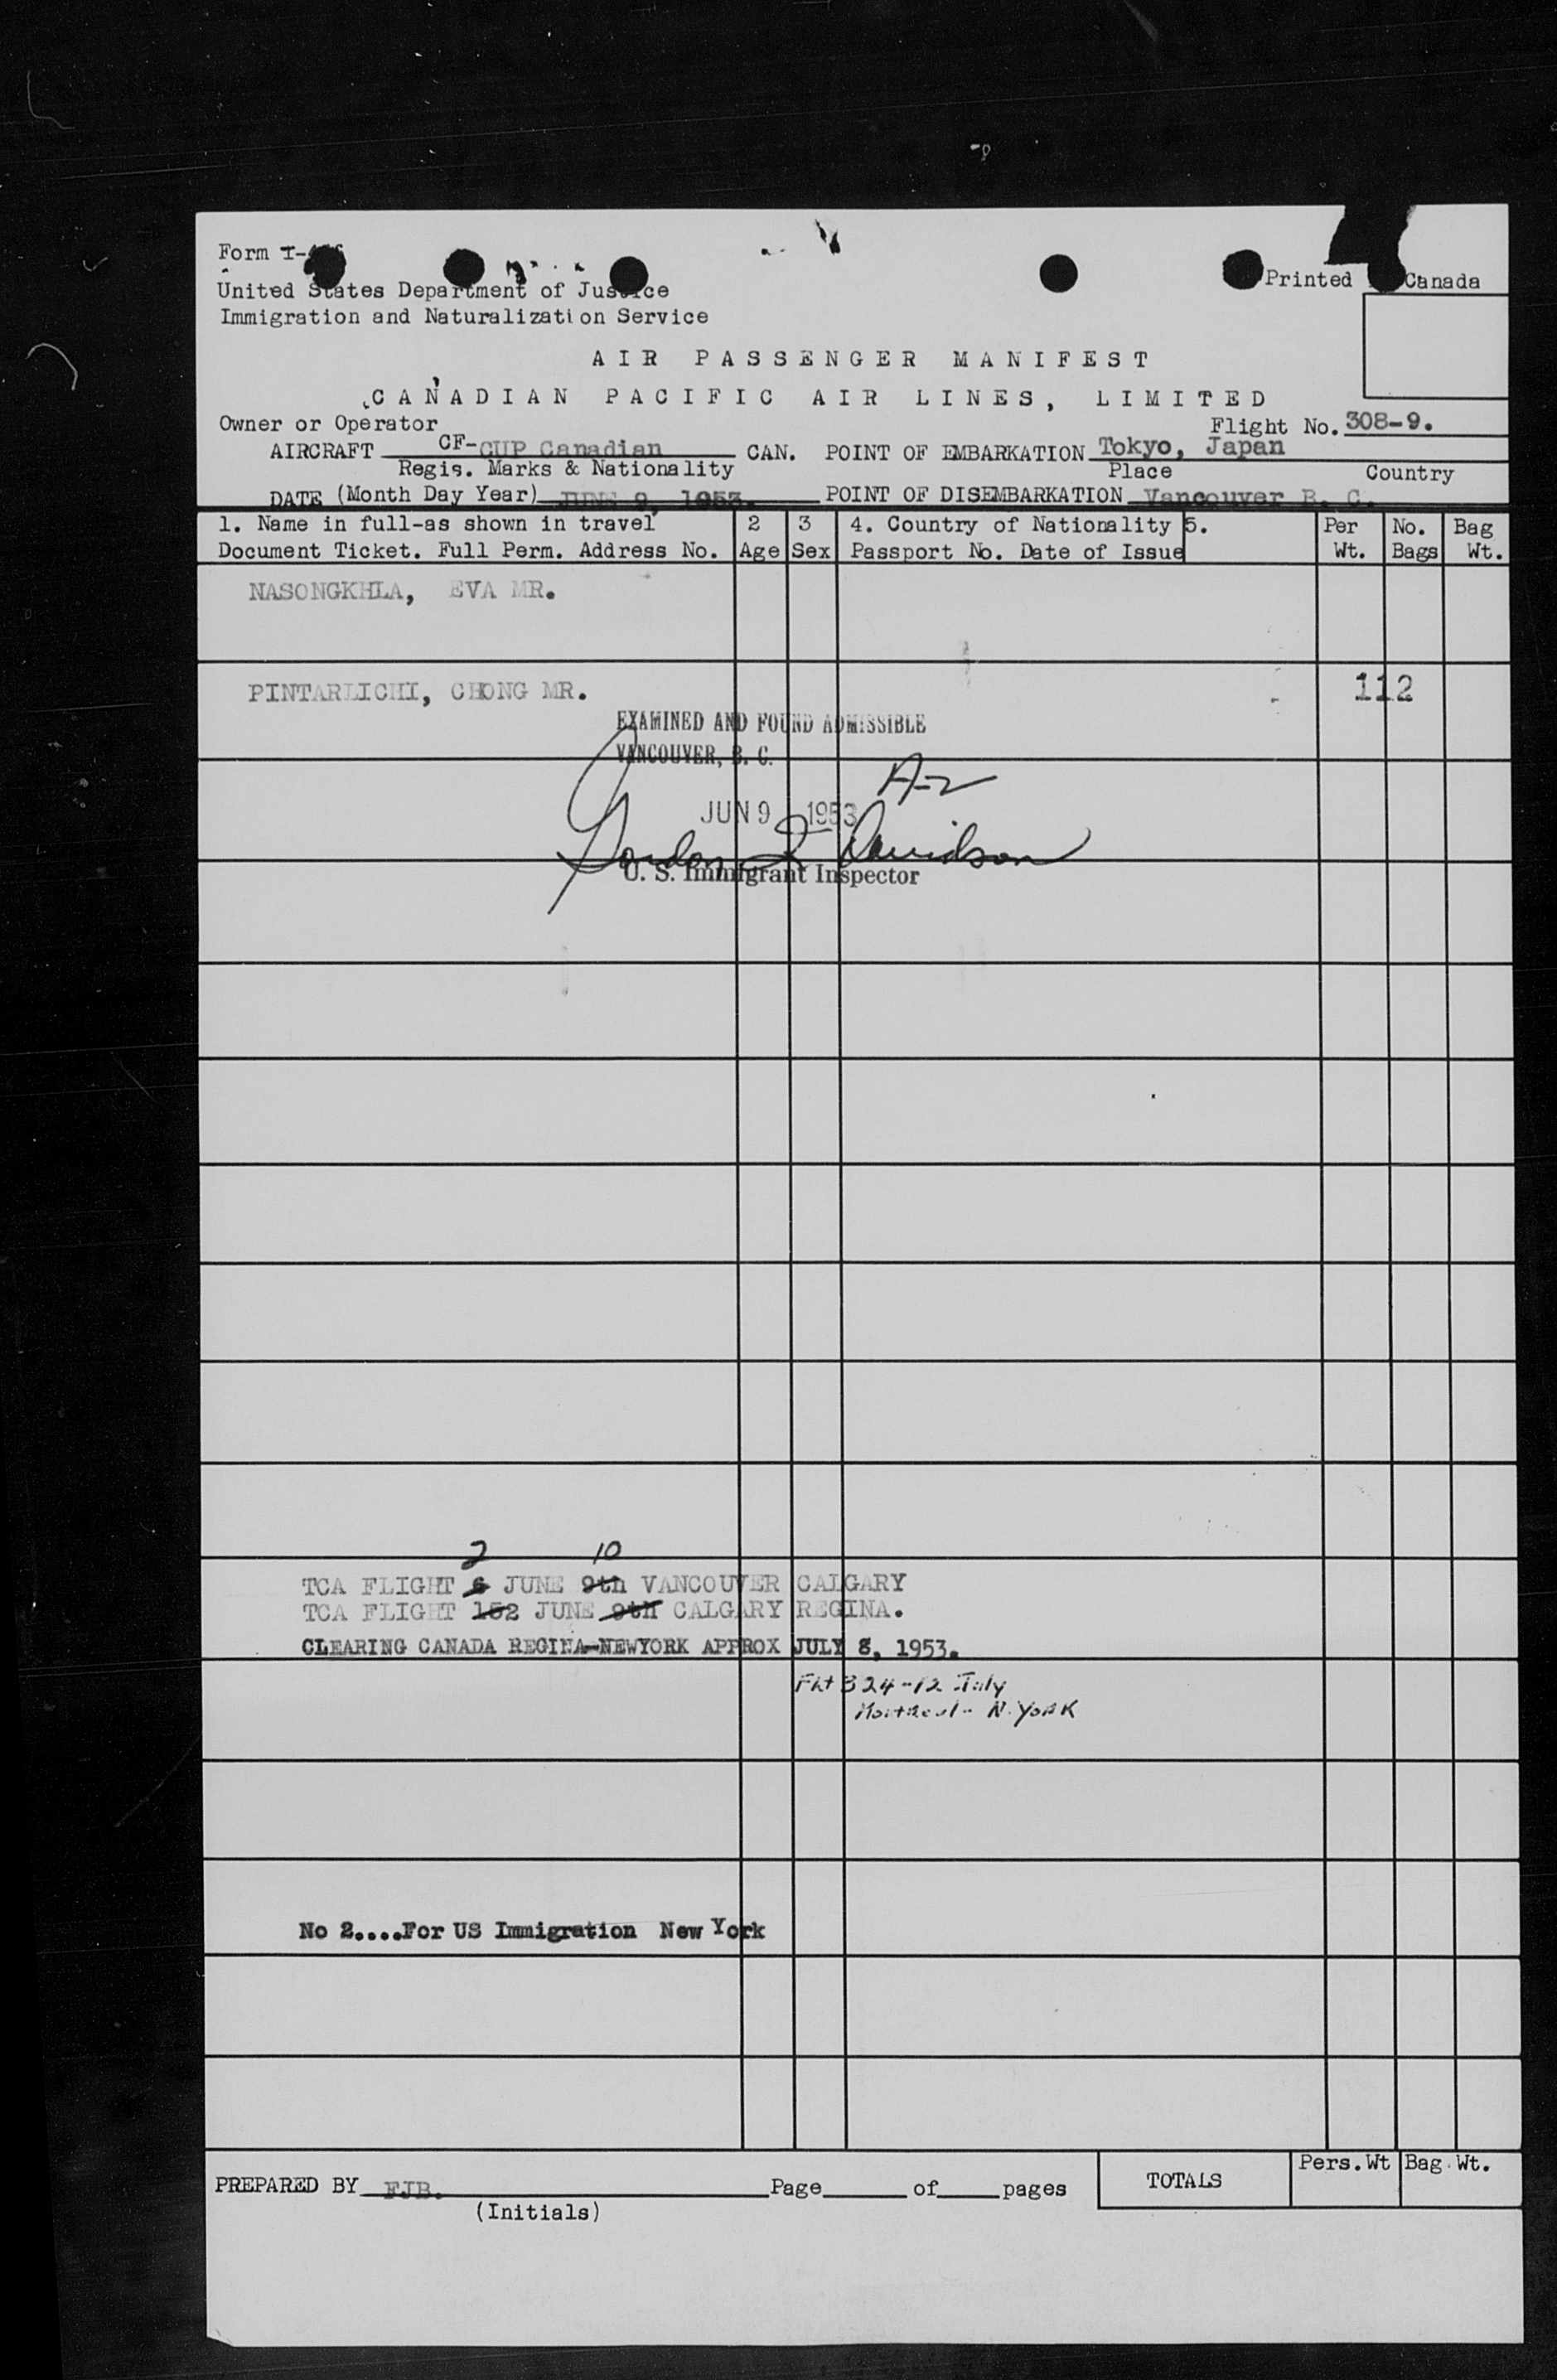 Form I-
United States Department of Justice
Printed Canada
Immigration and Naturalization Service
AIR PASSENGER MANIFEST
CANADIAN PACIFIC AIR LINES, LIMITED
Owner or Operator
Flight No. 308-9.
AIRCRAFT CF-CUP Canadian CAN. POINT OF EMBARKATION Tokyo, Japan
Regis. Marks & Nationality Place Country
DATE (Month Day Year) JUNE 9, 1953. POINT OF DISEMBARKATION Vancouver B. C.
1. Name in full-as shown in travel 2 3 4. Country of Nationality 5. Per No. Bag
Document Ticket. Full Perm. Address No. Age Sex Passport No. Date of Issue Wt. Bags Wt.
NASONGKHLA, EVA MR.
PINTARLICHI, CHONG MR. 112
EXAMINED AND FOUND ADMISSIBLE
VANCOUVER, B. C.
A-2
JUN 9 1953
Gordon Davidson
U. S. Immigrant Inspector
2 10
TCA FLIGHT 6 JUNE 9th VANCOUVER CALGARY
TCA FLIGHT 152 JUNE 9th CALGARY REGINA.
CLEARING CANADA REGINA-NEWYORK APPROX JULY 8, 1953.
Flt 324-12 July
Montreal - N. YORK
No 2....For US Immigration New York
PREPARED BY FJB. Page of pages TOTALS Pers. Wt Bag. Wt.
(Initials)